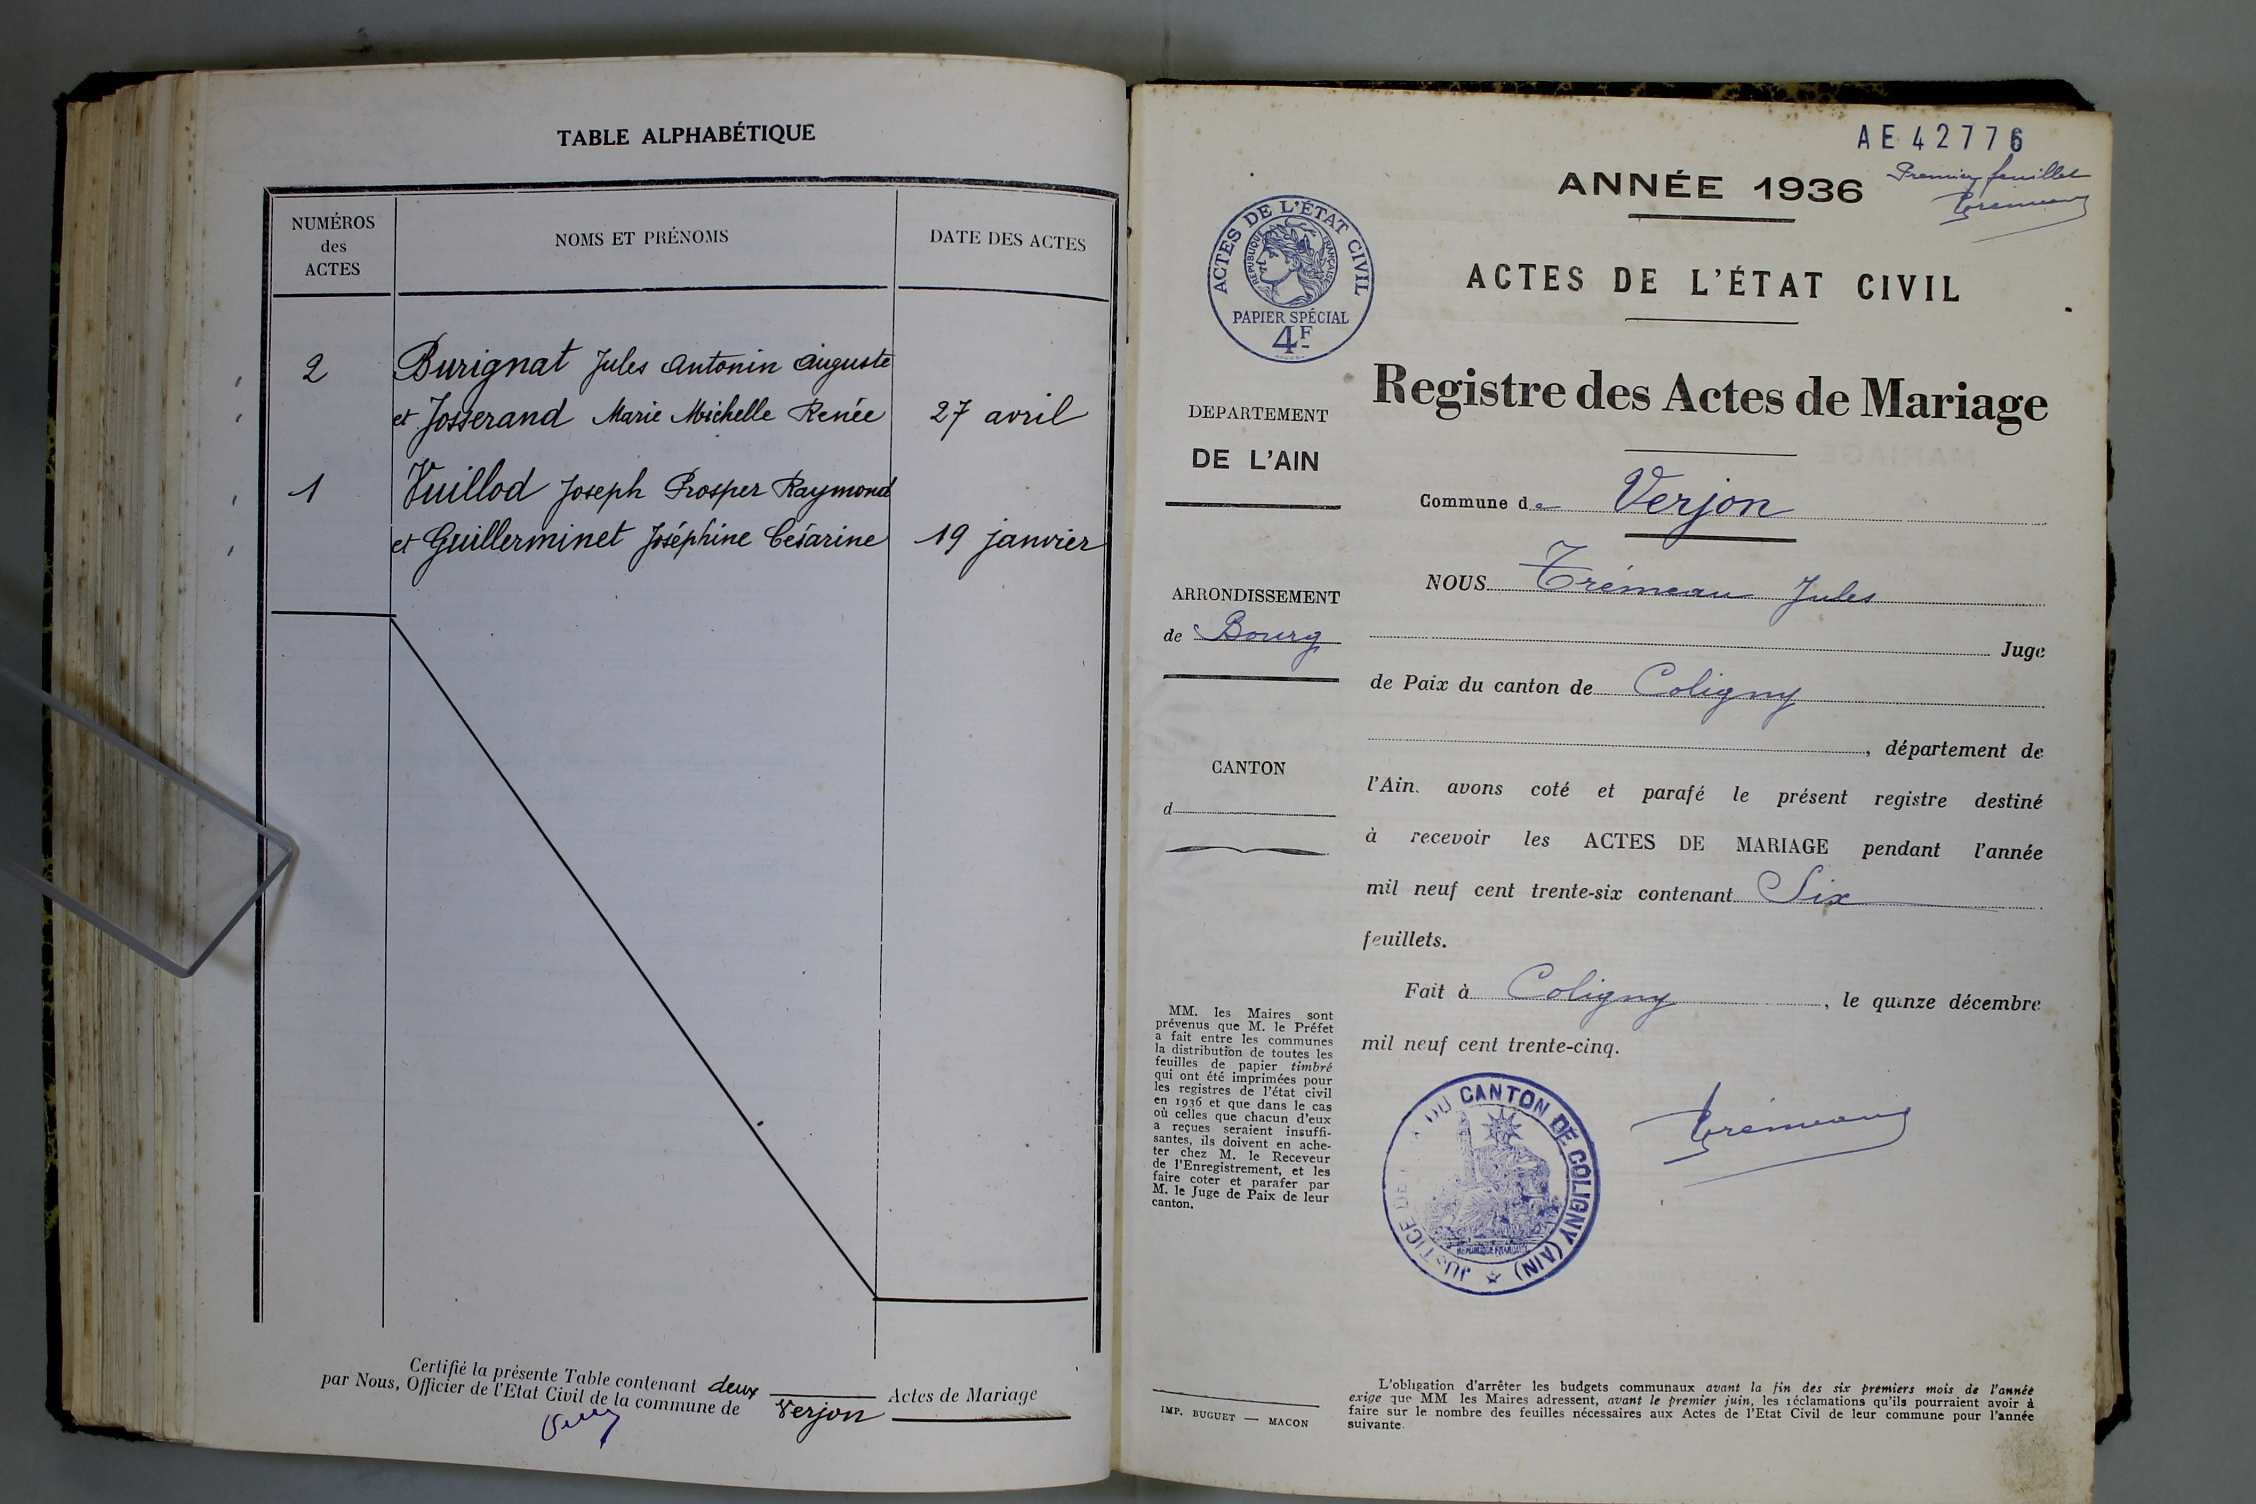 TABLE ALPHABÉTIQUE
NUMÉROS
des
ACTES
NOMS ET PRÉNOMS
DATE DES ACTES
2
Burignat Jules Antonin Auguste
et Josserand Marie Michelle Renée
27 avril
1
Vuillod Joseph Prosper Raymond
et Guillerminet Joséphine Césarine
19 janvier
Certifié la présente Table contenant deux Actes de Mariage
par Nous, Officier de l'Etat Civil de la commune de Verjon
AE 42776
Premier feuillet
Trémeau
ANNÉE 1936
ACTES DE L'ÉTAT CIVIL
RÉPUBLIQUE FRANÇAISE
PAPIER SPÉCIAL
4F
ACTES DE L'ÉTAT CIVIL
Registre des Actes de Mariage
DEPARTEMENT
DE L'AIN
ARRONDISSEMENT
de Bourg
CANTON
d
MM. les Maires sont
prévenus que M. le Préfet
a fait entre les communes
la distribution de toutes les
feuilles de papier timbré
qui ont été imprimées pour
les registres de l'état civil
en 1936 et que dans le cas
où celles que chacun d'eux
a reçues seraient insuffi-
santes, ils doivent en ache-
ter chez M. le Receveur
de l'Enregistrement, et les
faire coter et parafer par
M. le Juge de Paix de leur
canton.
IMP. BUGUET — MACON
Commune de Verjon
NOUS Trémeau Jules
Juge
de Paix du canton de Coligny
, département de
l'Ain. avons coté et parafé le présent registre destiné
à recevoir les ACTES DE MARIAGE pendant l'année
mil neuf cent trente-six contenant Six
feuillets.
Fait à Coligny, le quinze décembre
mil neuf cent trente-cinq.
Trémeau
JUSTICE DE DU CANTON DE COLIGNY (AIN)
RÉPUBLIQUE FRANÇAISE
L'obligation d'arrêter les budgets communaux avant la fin des six premiers mois de l'année
exige que MM les Maires adressent, avant le premier juin, les réclamations qu'ils pourraient avoir à
faire sur le nombre des feuilles nécessaires aux Actes de l'Etat Civil de leur commune pour l'année
suivante.